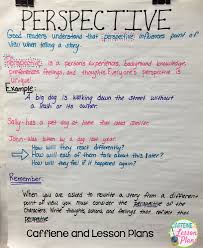 PERSPECTIVE
Good readers understand that perspective influences point of
view when telling a story.
Perspective is a person's experiences, background knowledge,
preferences, feelings, and thoughts. Everyone's perspective is
unique!
Example:
A big dog is walking down the street without
a leash or its owner.
Sally- has a pet dog at home that she loves.
John- was bitten by a dog last year.
How will they react differently?
How will each of them talk about this later?
How will they feel if it happened again?
Remember:
When you are asked to rewrite a story from a different
point of view you must consider the perspective of the
characters. Write thoughts, actions, and feelings that reflect this
perspective
Caffeine and Lesson Plans
CAFFEINE
& Lesson
Plans